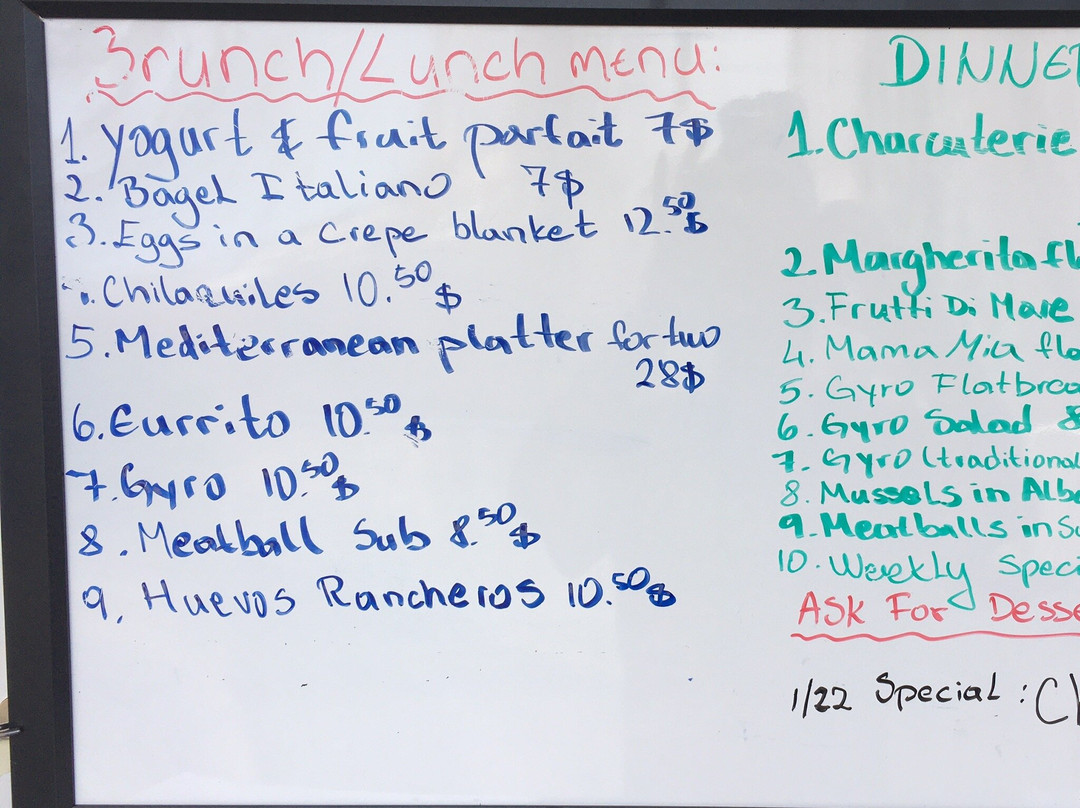 Brunch/Lunch menu:
1. Yogurt & fruit parfait 7$
2. Bagel Italiano 7$
3. Eggs in a crepe blanket 12.50$
. Chilaquiles 10.50$
5. Mediterranean platter for two
28$
6. Burrito 10.50$
7. Gyro 10.50$
8. Meatball Sub 8.50$
9, Huevos Rancheros 10.50$
DINNE
1. Charcuterie
2. Margherita fl
3. Frutti Di Mare
4. Mama Mia fla
5. Gyro Flatbrea
6. Gyro Salad 8
7. Gyro (traditional
8. Mussels in Alb
9. Meatballs in S
10. Weekly Speci
ASK For Desse
1/22 Special : Ch